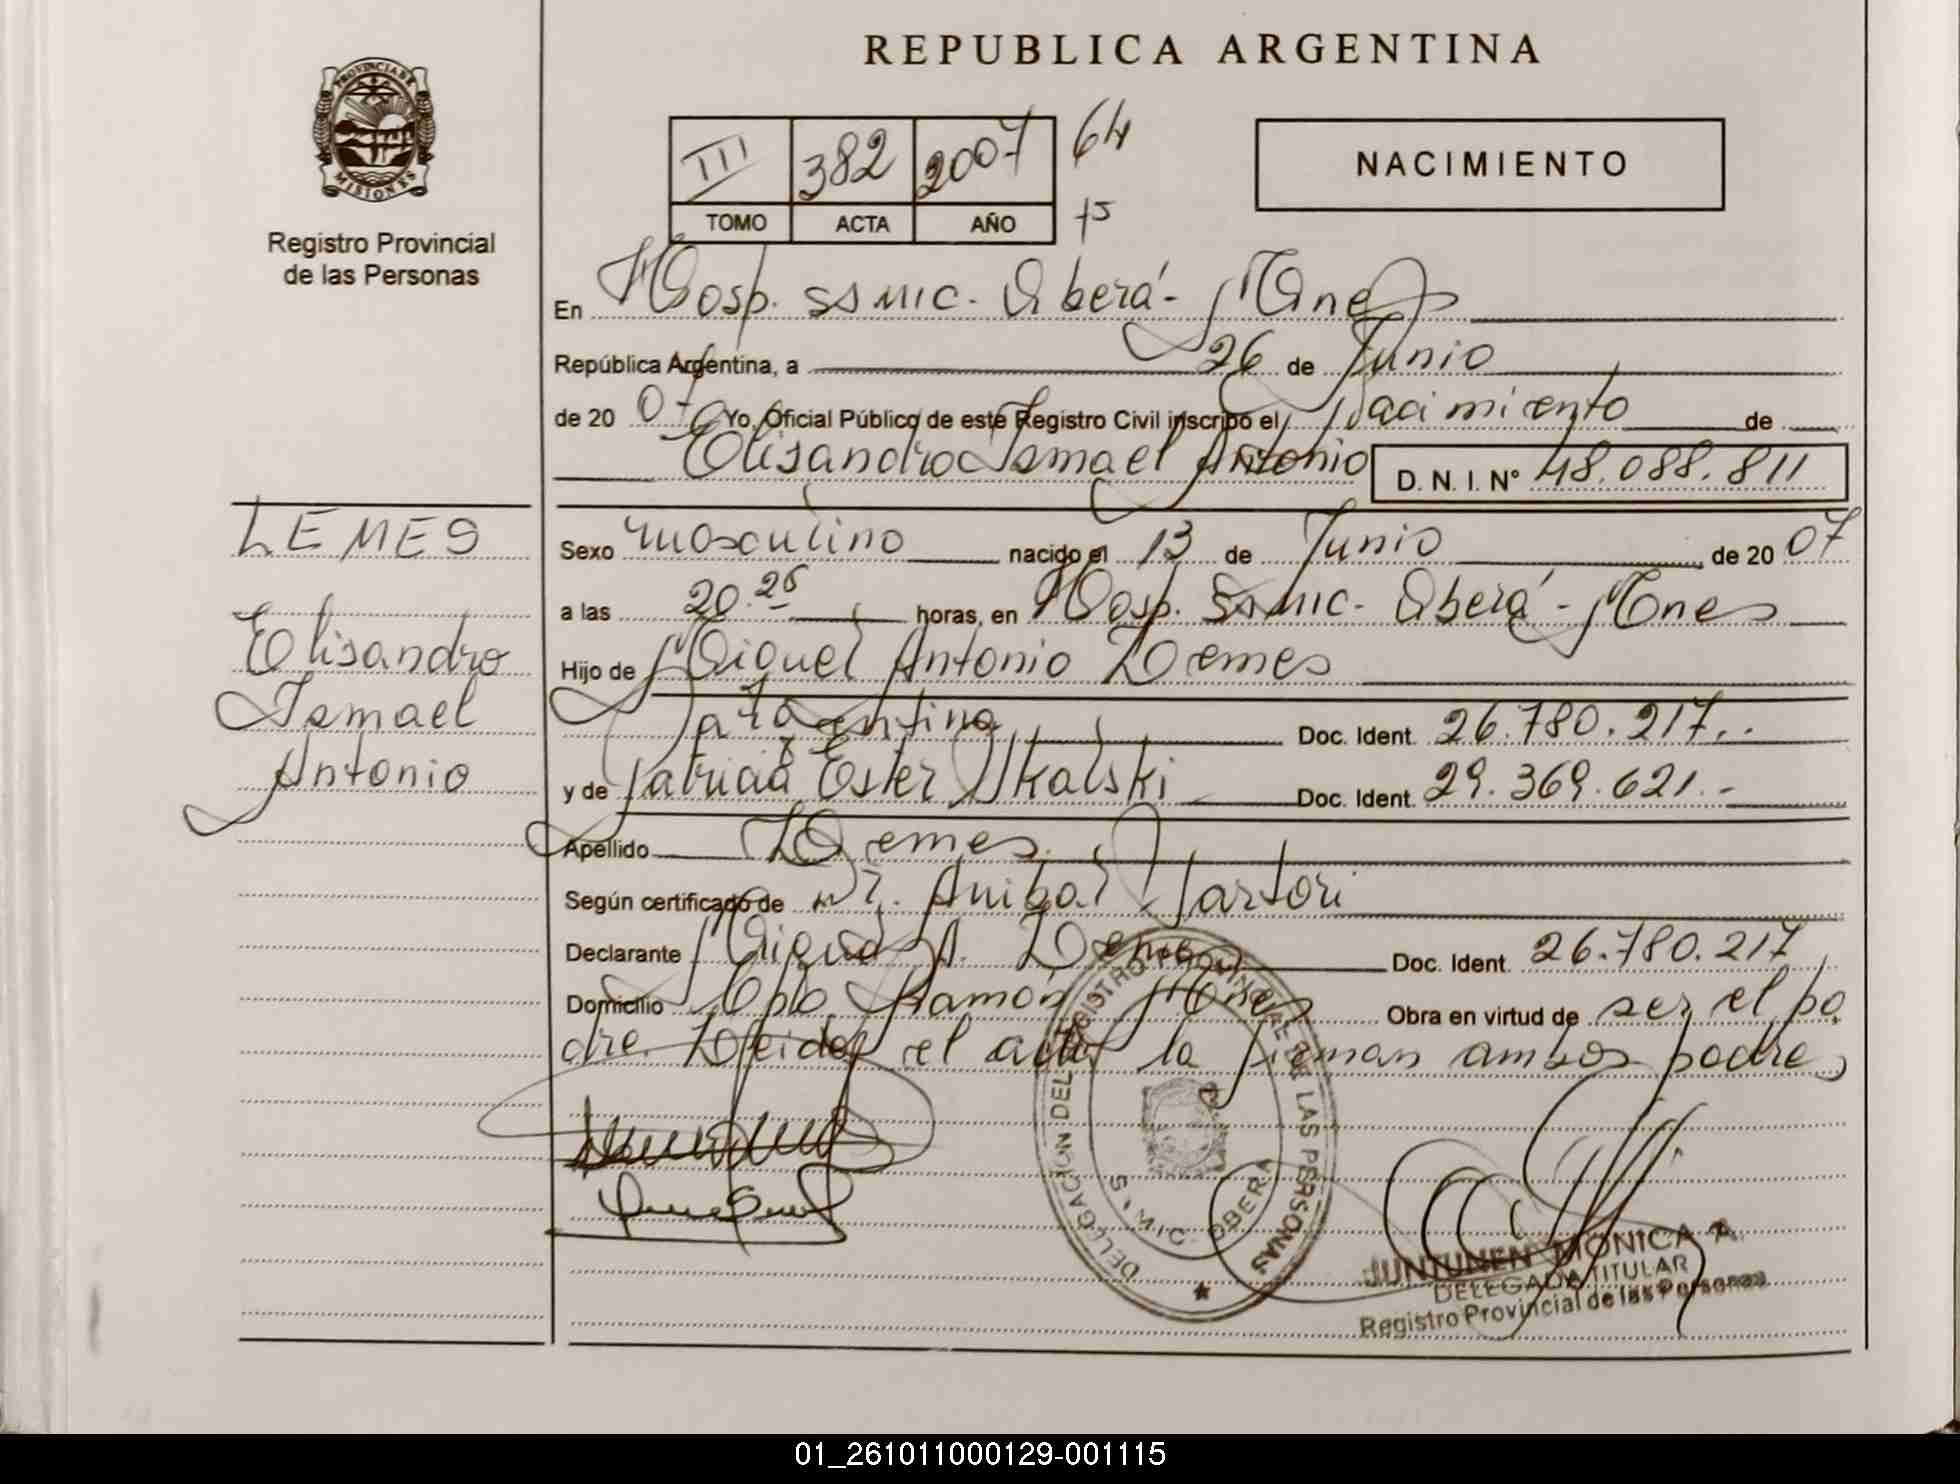 REPUBLICA ARGENTINA
PROVINCIA DE
MISIONES
Registro Provincial
de las Personas
III 382 2007 64
TOMO ACTA AÑO 75
NACIMIENTO
En Hosp. SAMIC - Oberá - Mnes
República Argentina, a 26 de Junio
de 20 07 Yo, Oficial Público de este Registro Civil inscribo el Nacimiento de
Elisandro Ismael Antonio D. N. I. Nº 48.088.811
LEMES
Elisandro
Ismael
Antonio
Sexo masculino nacido el 13 de Junio de 20 07
a las 20.25 horas, en Hosp. SAMIC - Oberá - Mnes
Hijo de Miguel Antonio Lemes
Argentina Doc. Ident. 26.780.217..
y de Fabricia Ester Skalski Doc. Ident. 29.369.621.-
Apellido Lemes.
Según certificado de Dr. Anibal Sartori
Declarante Miguel A. Lemes Doc. Ident. 26.780.217
Domicilio Cpo Ramón Mnes Obra en virtud de ser el pa
dre. Leida el acta la firman ambos padres
DELEGACION DEL REGISTRO PROVINCIAL DE LAS PERSONAS
SAMIC - OBERA
JUNTUNEN MONICA A.
DELEGADA TITULAR
Registro Provincial de las Personas
01_261011000129-001115